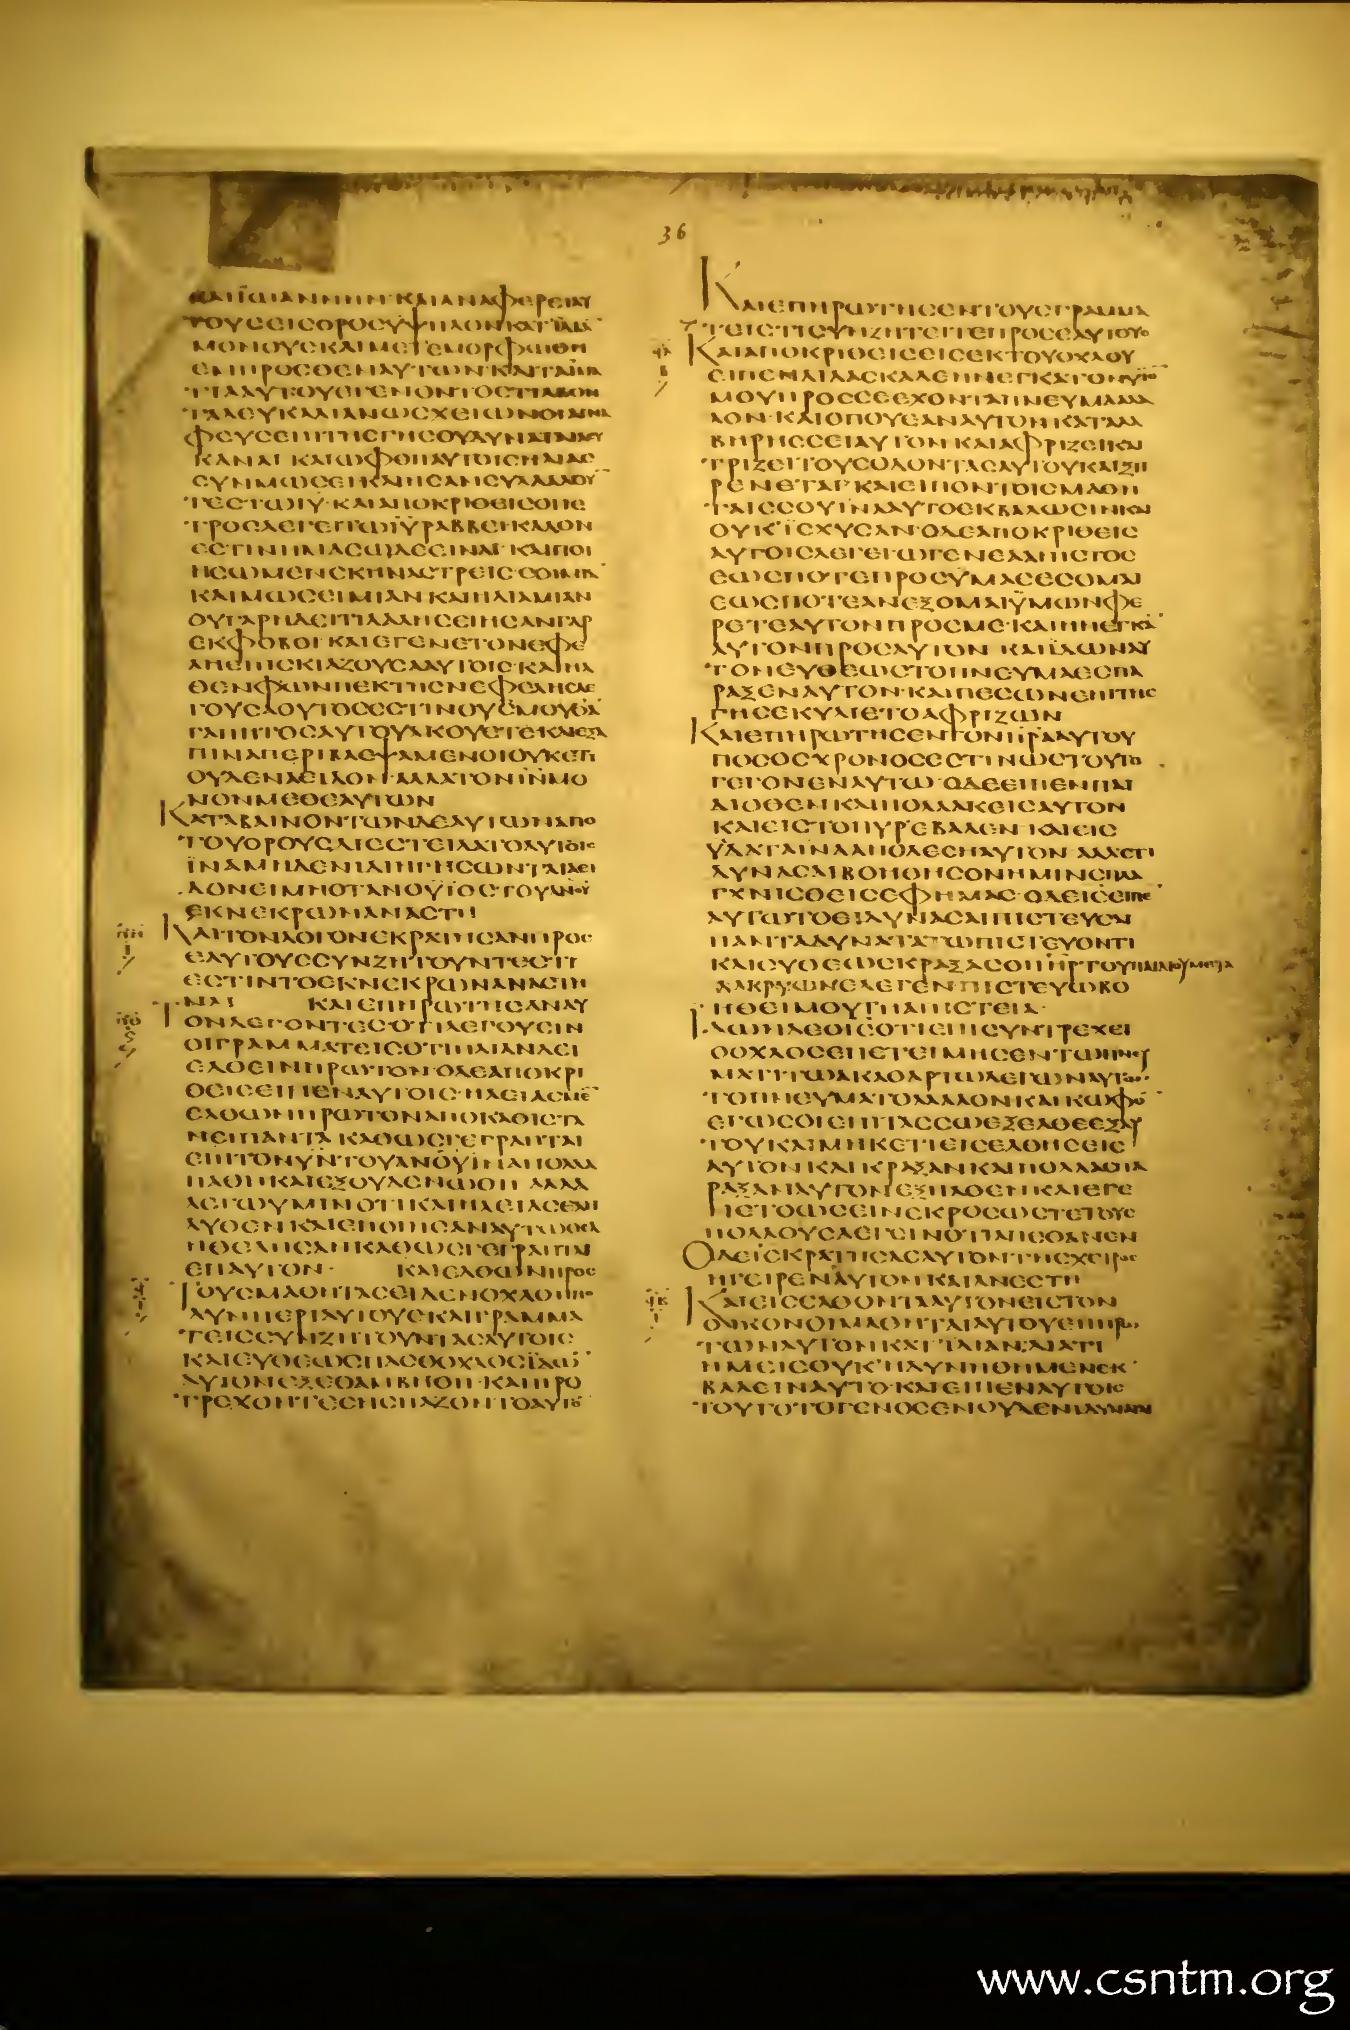 36
ΚΑΙΪΩΑΝΝΗΝ·ΚΑΙΑΝΑΦΕΡΕΙΑΥ
ΤΟΥΣΕΙΣΟΡΟΣΥΨΗΛΟΝΚΑΤΪΔΙΑ
ΜΟΝΟΥΣΚΑΙΜΕΤΕΜΟΡΦΩΘΗ
ΕΜΠΡΟΣΘΕΝΑΥΤΩΝ·ΚΑΙΤΑΪΜΑ
ΤΙΑΑΥΤΟΥΕΓΕΝΟΝΤΟΣΤΙΛΒΟΝ
ΤΑΛΕΥΚΑΛΙΑΝΩΣΧΕΙΩΝΟΙΑΓΝΑ
ΦΕΥΣΕΠΙΤΗΣΓΗΣΟΥΔΥΝΑΤΑΙΛΕΥ
ΚΑΝΑΙ ΚΑΙΩΦΘΗΑΥΤΟΙΣΗΛΙΑΣ
ΣΥΝΜΩΣΕΙΚΑΙΗΣΑΝΣΥΛΛΑΛΟΥ
ΤΕΣΤΩΙΥ·ΚΑΙΑΠΟΚΡΙΘΕΙΣΟΠΕ
ΤΡΟΣΛΕΓΕΙΤΩΙΥΡΑΒΒΕΙΚΑΛΟΝ
ΕΣΤΙΝΗΜΑΣΩΔΕΕΙΝΑΙ·ΚΑΙΠΟΙ
ΗΣΩΜΕΝΣΚΗΝΑΣΤΡΕΙΣ·ΣΟΙΜΙΑ
ΚΑΙΜΩΣΕΙΜΙΑΝΚΑΙΗΛΙΑΜΙΑΝ
ΟΥΓΑΡΗΔΕΙΤΙΛΑΛΗΣΕΙΗΣΑΝΓΑΡ
ΕΚΦΟΒΟΙ·ΚΑΙΕΓΕΝΕΤΟΝΕΦΕ
ΛΗΕΠΙΣΚΙΑΖΟΥΣΑΑΥΤΟΙΣ·ΚΑΙΗΛ
ΘΕΝΦΩΝΗΕΚΤΗΣΝΕΦΕΛΗΣΛΕ
ΓΟΥΣΑΟΥΤΟΣΕΣΤΙΝΟΥΣΜΟΥΟΑ
ΓΑΠΗΤΟΣΑΥΤΟΥΑΚΟΥΕΤΕΚΑΙΕΞΑ
ΠΙΝΑΠΕΡΙΒΛΕΨΑΜΕΝΟΙΟΥΚΕΤΙ
ΟΥΔΕΝΑΕΙΔΟΝ·ΑΛΛΑΤΟΝΙΝΜΟ
ΝΟΝΜΕΘΕΑΥΤΩΝ
ΚΑΤΑΒΑΙΝΟΝΤΩΝΔΕΑΥΤΩΝΑΠΟ
ΤΟΥΟΡΟΥΣΔΙΕΣΤΕΙΛΑΤΟΑΥΤΟΙΣ
ΪΝΑΜΗΔΕΝΙΔΙΗΓΗΣΩΝΤΑΙΑΕΙ
ΔΟΝΕΙΜΗΟΤΑΝΟΥΪΟΣΤΟΥΑΝΟΥ
ΕΚΝΕΚΡΩΝΑΝΑΣΤΗ
ΚΑΙΤΟΝΛΟΓΟΝΕΚΡΑΤΗΣΑΝΠΡΟΣ
ΕΑΥΤΟΥΣΣΥΝΖΗΤΟΥΝΤΕΣΤΙ
ΕΣΤΙΝΤΟΕΚΝΕΚΡΩΝΑΝΑΣΤΗ
ΝΑΙ ΚΑΙΕΠΗΡΩΤΗΣΑΝΑΥ
ΤΟΝΛΕΓΟΝΤΕΣΟΤΙΛΕΓΟΥΣΙΝ
ΟΙΓΡΑΜΜΑΤΕΙΣΟΤΙΗΛΙΑΝΔΕΙ
ΕΛΘΕΙΝΠΡΩΤΟΝ·ΟΔΕΑΠΟΚΡΙ
ΘΕΙΣΕΙΠΕΝΑΥΤΟΙΣ·ΗΛΕΙΑΣΜΕ
ΕΛΘΩΝΠΡΩΤΟΝΑΠΟΚΑΘΙΣΤΑ
ΝΕΙΠΑΝΤΑ ΚΑΘΩΣΓΕΓΡΑΠΤΑΙ
ΕΠΙΤΟΝΥΝΤΟΥΑΝΟΥΪΝΑΠΟΛΛΑ
ΠΑΘΗΚΑΙΕΞΟΥΔΕΝΩΘΗ ΑΛΛΑ
ΛΕΓΩΥΜΙΝΟΤΙΚΑΙΗΛΕΙΑΣΕΛΗ
ΛΥΘΕΝΚΑΙΕΠΟΙΗΣΑΝΑΥΤΩΟΣΑ
ΗΘΕΛΗΣΑΝΚΑΘΩΣΓΕΓΡΑΠΤΑΙ
ΕΠΑΥΤΟΝ· ΚΑΙΕΛΘΩΝΠΡΟΣ
ΤΟΥΣΜΑΘΗΤΑΣΕΙΔΕΝΟΧΛΟΝΠΟ
ΛΥΝΠΕΡΙΑΥΤΟΥΣΚΑΙΓΡΑΜΜΑ
ΤΕΙΣΣΥΝΖΗΤΟΥΝΤΑΣΑΥΤΟΙΣ
ΚΑΙΕΥΘΕΩΣΠΑΣΟΟΧΛΟΣΪΔΩ
ΑΥΤΟΝΕΞΕΘΑΜΒΗΘΗ·ΚΑΙΠΡΟ
ΤΡΕΧΟΝΤΕΣΗΣΠΑΖΟΝΤΟΑΥΤΟ
ΚΑΙΕΠΗΡΩΤΗΣΕΝΤΟΥΣΓΡΑΜΜΑ
ΤΕΙΣΤΙΣΥΝΖΗΤΕΙΤΕΠΡΟΣΕΑΥΤΟΥΣ
ΚΑΙΑΠΟΚΡΙΘΕΙΣΕΙΣΕΚΤΟΥΟΧΛΟΥ
ΕΙΠΕΝΔΙΔΑΣΚΑΛΕΗΝΕΓΚΑΤΟΝΥΙΟ
ΜΟΥΠΡΟΣΣΕΕΧΟΝΤΑΠΝΕΥΜΑΑΛΑ
ΛΟΝ·ΚΑΙΟΠΟΥΕΑΝΑΥΤΟΝΚΑΤΑΛΑ
ΒΗΡΗΣΣΕΙΑΥΤΟΝΚΑΙΑΦΡΙΖΕΙΚΑΙ
ΤΡΙΖΕΙΤΟΥΣΟΔΟΝΤΑΣΑΥΤΟΥΚΑΙΞΗ
ΡΕΝΕΤΑΙ·ΚΑΙΕΙΠΟΝΤΟΙΣΜΑΘΗ
ΤΑΙΣΣΟΥΪΝΑΑΥΤΟΕΚΒΑΛΩΣΙΝΚΑΙ
ΟΥΚΪΣΧΥΣΑΝ·ΟΔΕΑΠΟΚΡΙΘΕΙΣ
ΑΥΤΟΙΣΛΕΓΕΙΩΓΕΝΕΑΑΠΙΣΤΟΣ
ΕΩΣΠΟΤΕΠΡΟΣΥΜΑΣΕΣΟΜΑΙ
ΕΩΣΠΟΤΕΑΝΕΞΟΜΑΙΫΜΩΝΦΕ
ΡΕΤΕΑΥΤΟΝΠΡΟΣΜΕ·ΚΑΙΗΝΕΓΚΑ
ΑΥΤΟΝΠΡΟΣΑΥΤΟΝ ΚΑΙΪΔΩΝΑΥ
ΤΟΝΕΥΘΕΩΣΤΟΠΝΕΥΜΑΕΣΠΑ
ΡΑΞΕΝΑΥΤΟΝ·ΚΑΙΠΕΣΩΝΕΠΙΤΗΣ
ΓΗΣΕΚΥΛΙΕΤΟΑΦΡΙΖΩΝ
ΚΑΙΕΠΗΡΩΤΗΣΕΝΤΟΝΠΡΑΑΥΤΟΥ
ΠΟΣΟΣΧΡΟΝΟΣΕΣΤΙΝΩΣΤΟΥΤΟ
ΓΕΓΟΝΕΝΑΥΤΩ·ΟΔΕΕΙΠΕΝΠΑΙ
ΔΙΟΘΕΝΚΑΙΠΟΛΛΑΚΕΙΣΑΥΤΟΝ
ΚΑΙΕΙΣΤΟΠΥΡΕΒΑΛΕΝ ΚΑΙΕΙΣ
ΥΔΑΤΑΪΝΑΑΠΟΛΕΣΗΑΥΤΟΝ ΑΛΛΕΙΤΙ
ΔΥΝΑΣΑΙΒΟΗΘΗΣΟΝΗΜΙΝΣΠΛΑ
ΓΧΝΙΣΘΕΙΣΕΦΗΜΑΣ·ΟΔΕΙΣΕΙΠΕ
ΑΥΤΩΤΟΕΙΔΥΝΑΣΑΙΠΙΣΤΕΥΣΑΙ
ΠΑΝΤΑΔΥΝΑΤΑΤΩΠΙΣΤΕΥΟΝΤΙ
ΚΑΙΕΥΘΕΩΣΚΡΑΞΑΣΟΠΗΡΤΟΥΠΑΙΔΙΟΥΜΕΤΑ
ΔΑΚΡΥΩΝΕΛΕΓΕΝΠΙΣΤΕΥΩΒΟ
ΗΘΕΙΜΟΥΤΗΑΠΙΣΤΕΙΑ·
ΪΔΩΝΔΕΟΙΣΟΤΙΕΠΙΣΥΝΤΡΕΧΕΙ
ΟΟΧΛΟΣΕΠΕΤΕΙΜΗΣΕΝΤΩΠΝΕΥ
ΜΑΤΙΤΩΑΚΑΘΑΡΤΩΛΕΓΩΝΑΥΤΩ
ΤΟΠΝΕΥΜΑΤΟΑΛΑΛΟΝΚΑΙΚΩΦΟ
ΕΓΩΣΟΙΕΠΙΤΑΣΣΩΕΞΕΛΘΕΕΞΑΥ
ΤΟΥΚΑΙΜΗΚΕΤΙΕΙΣΕΛΘΗΣΕΙΣ
ΑΥΤΟΝΚΑΙΚΡΑΞΑΝΚΑΙΠΟΛΛΑΣΠΑ
ΡΑΞΑΝΑΥΤΟΝΕΞΗΛΘΕΝΚΑΙΕΓΕ
ΝΕΤΟΩΣΕΙΝΕΚΡΟΣΩΣΤΕΤΟΥΣ
ΠΟΛΛΟΥΣΛΕΓΕΙΝΟΤΙΑΠΕΘΑΝΕΝ
ΟΔΕΙΣΚΡΑΤΗΣΑΣΑΥΤΟΝΤΗΣΧΕΙΡΟΣ
ΗΓΕΙΡΕΝΑΥΤΟΝΚΑΙΑΝΕΣΤΗ
ΚΑΙΕΙΣΕΛΘΟΝΤΑΑΥΤΟΝΕΙΣΤΟΝ
ΟΙΚΟΝΟΙΜΑΘΗΤΑΙΑΥΤΟΥΕΠΗΡΩ
ΤΩΝΑΥΤΟΝΚΑΤΪΔΙΑΝ·ΔΙΑΤΙ
ΗΜΕΙΣΟΥΚΗΔΥΝΗΘΗΜΕΝΕΚ
ΒΑΛΕΙΝΑΥΤΟ·ΚΑΙΕΙΠΕΝΑΥΤΟΙΣ
ΤΟΥΤΟΤΟΓΕΝΟΣΕΝΟΥΔΕΝΙΔΥΝΑΤΑΙ
www.csntm.org